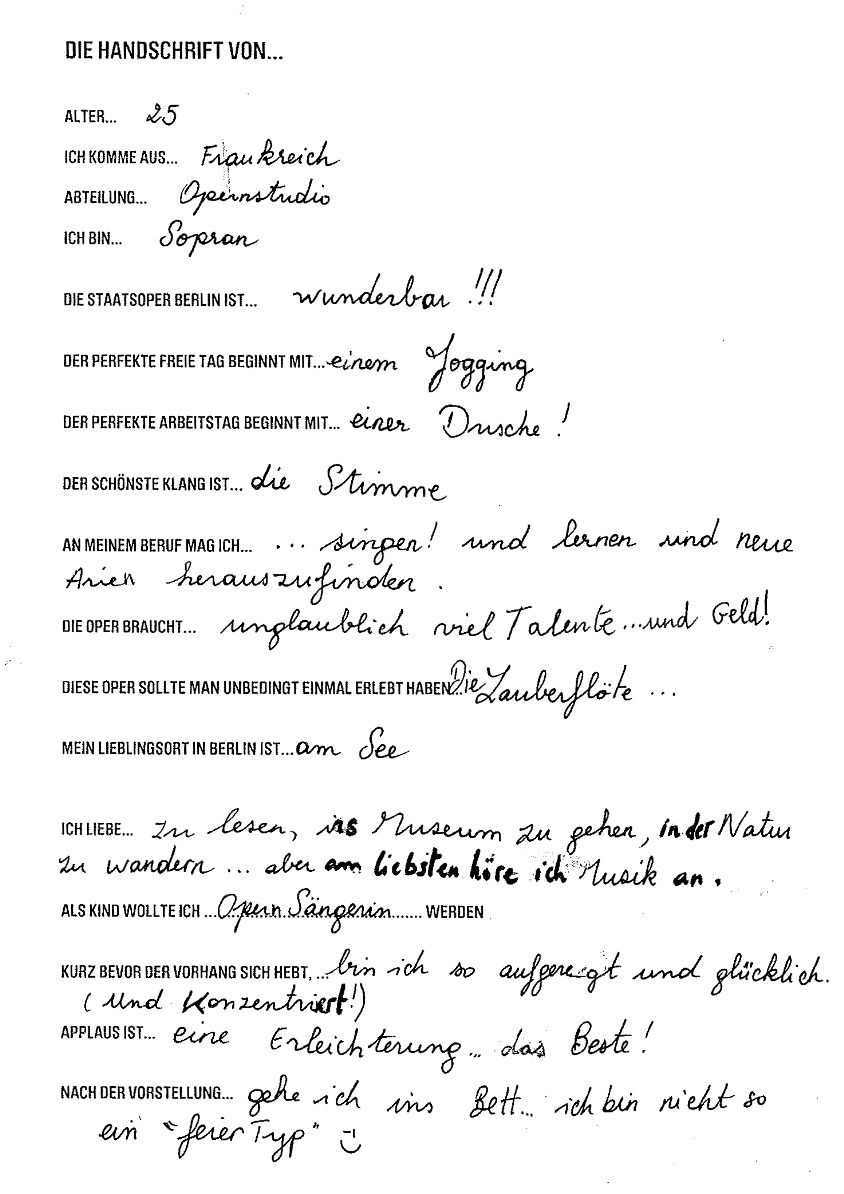 DIE HANDSCHRIFT VON...
ALTER... 25
ICH KOMME AUS... Frankreich
ABTEILUNG... Opernstudio
ICH BIN... Sopran
DIE STAATSOPER BERLIN IST... wunderbar !!!
DER PERFEKTE FREIE TAG BEGINNT MIT... einem Jogging
DER PERFEKTE ARBEITSTAG BEGINNT MIT... einer Dusche !
DER SCHÖNSTE KLANG IST... die Stimme
AN MEINEM BERUF MAG ICH... ... singen! und lernen und neue
Arien herauszufinden .
DIE OPER BRAUCHT... unglaublich viel Talente...und Geld!
DIESE OPER SOLLTE MAN UNBEDINGT EINMAL ERLEBT HABEN... Die Zauberflöte ...
MEIN LIEBLINGSORT IN BERLIN IST... am See
ICH LIEBE... zu lesen, ins Museum zu gehen, in der Natur
zu wandern ... aber am liebsten höre ich Musik an.
ALS KIND WOLLTE ICH ...Opern Sängerin....... WERDEN
KURZ BEVOR DER VORHANG SICH HEBT, ...bin ich so aufgeregt und glücklich.
(Und Konzentriert!)
APPLAUS IST... eine Erleichterung... das Beste!
NACH DER VORSTELLUNG... gehe ich ins Bett... ich bin nicht so
ein "feier Typ"